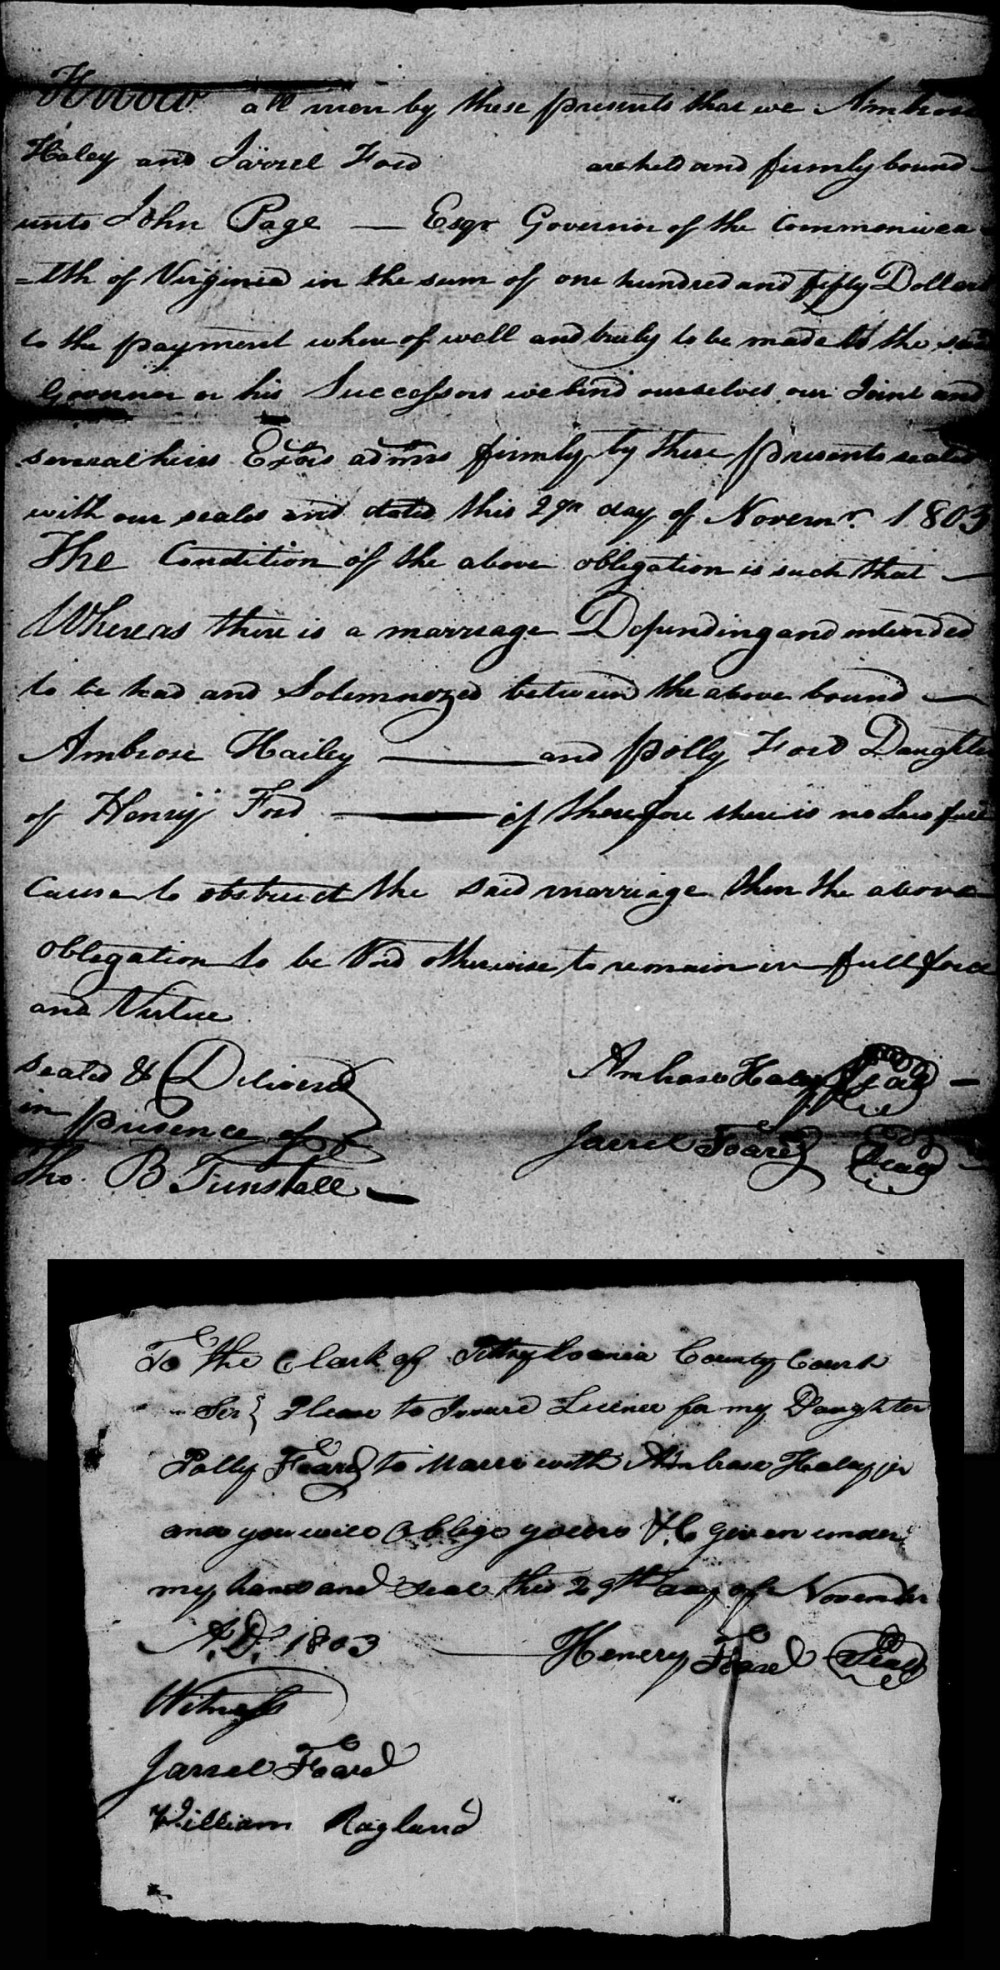 Know all men by these presents that we Ambrose
Haley and Jarrel Ford are held and firmly bound
unto John Page — Esqr Governor of the Commonwea
=lth of Virginia in the sum of one hundred and fifty Dollars
to the payment where of well and truly to be made to the said
Governor or his Successors we bind ourselves our Joint and
several heirs Exors admrs firmly by these presents sealed
with our seales and dated this 29th day of Novemr. 1803
The Condition of the above obligation is such that —
Whereas there is a marriage Depending and intended
to be had and Solemnized between the above bound —
Ambrose Hailey — and polly Ford Daughter
of Henry Ford — if therefore there is no Law full
Cause to obstruct the said marriage then the above
obligation to be Void otherwise to remain in full force
and Virtue
sealed & Deliverd
in presence of
Tho. B Tunstall —
Ambrose Haley Seal —
Jarrel Foard Seal —
To the Clark of Pittsylvania County Court
Sir Please to Issue Licince for my Daughter
Polly Foard to Marre with Ambrose Haley jr
and you will Oblige yours &C given under
my hand and Seal this 29th day of November
A.D. 1803 — Henery Foard Seal
Witness
Jarrel Foard
William Ragland